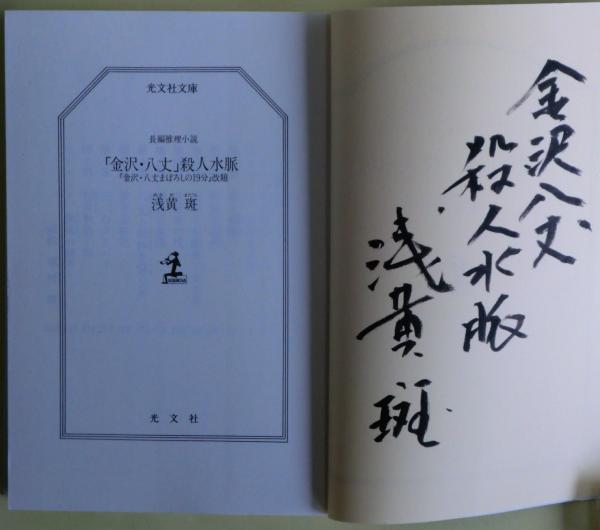 光文社文庫
長編推理小説
「金沢・八丈」殺人水脈
『金沢・八丈まぼろしの19分』改題
浅黄 斑
光文社
金沢八丈
殺人水脈
浅黄斑